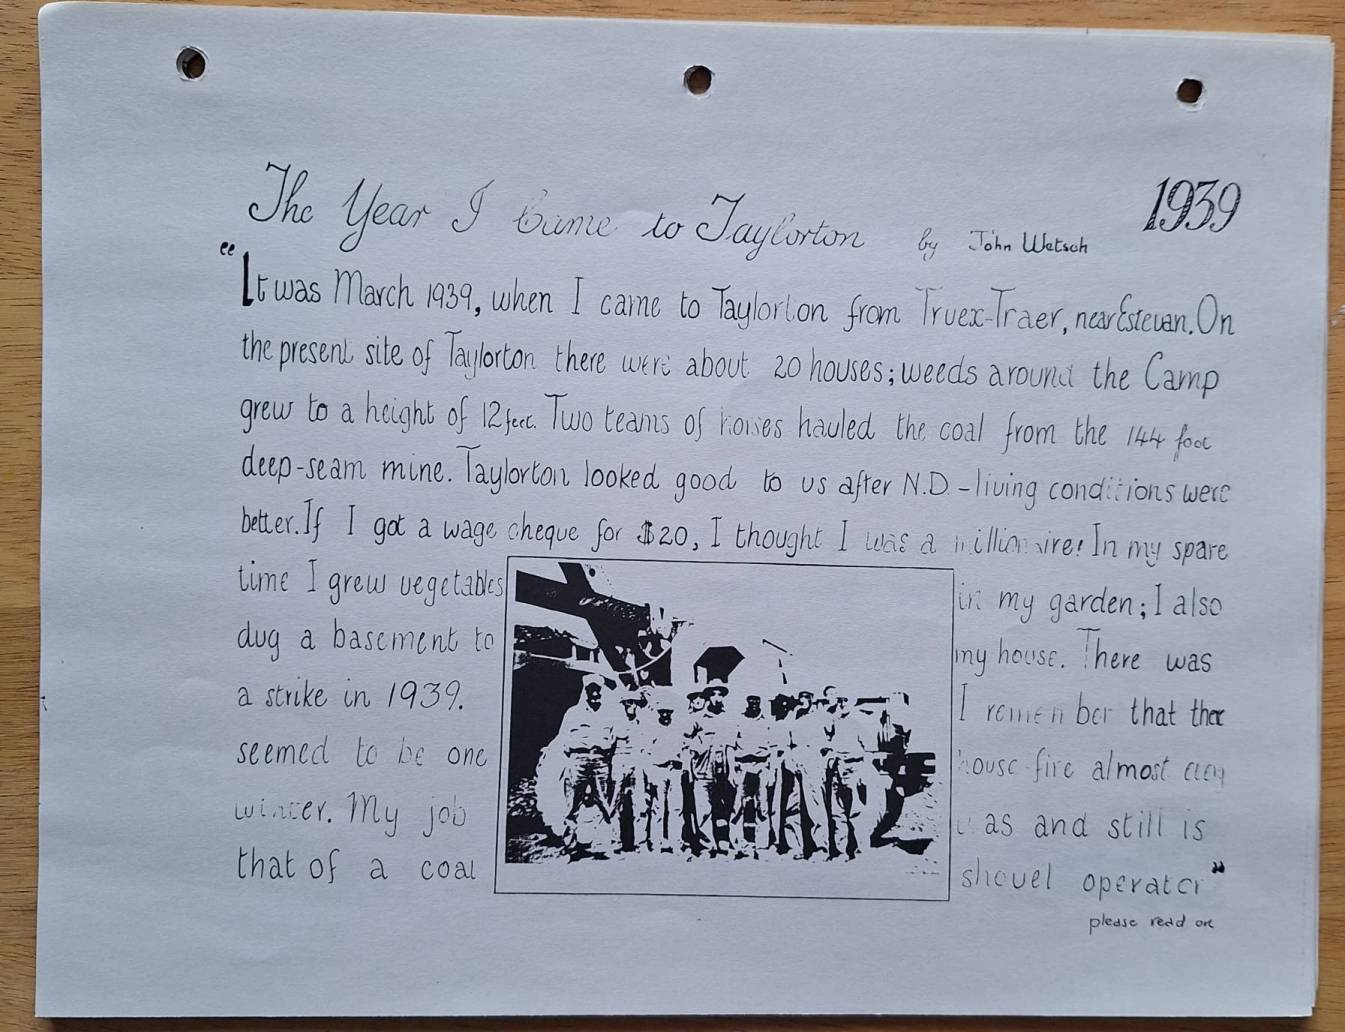 The Year I Came to Taylorton by John Wetsch 1939
"It was March 1939, when I came to Taylorton from Truex-Traer, near Estevan. On
the present site of Taylorton there were about 20 houses; weeds around the Camp
grew to a height of 12 feet. Two teams of horses hauled the coal from the 144 foot
deep-seam mine. Taylorton looked good to us after N.D. - living conditions were
better. If I got a wage cheque for $20, I thought I was a millionaire! In my spare
time I grew vegetables in my garden; I also
dug a basement to my house. There was
a strike in 1939. I remember that there
seemed to be one house fire almost every
winter. My job was and still is
that of a coal shovel operator"
please read on